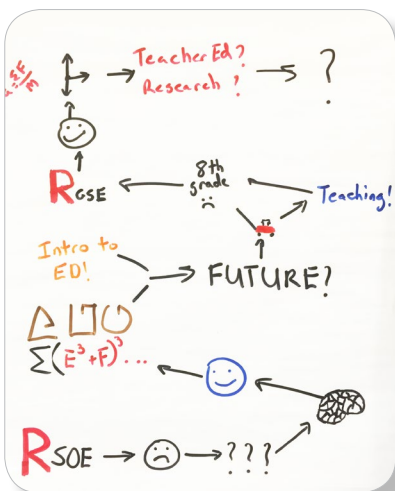 a=ΣF/M
Teacher Ed?
Research?
?
RGSE
8th
grade
Teaching!
Intro to
ED!
FUTURE?
Σ(E³+F)³...
RSOE
???